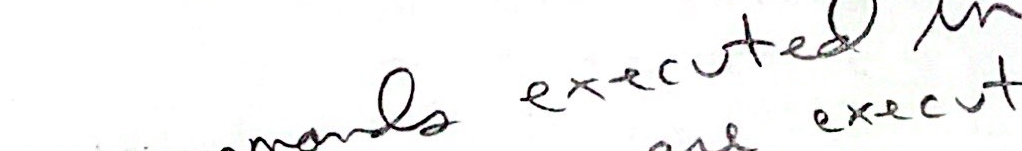 commands executed in
are execut